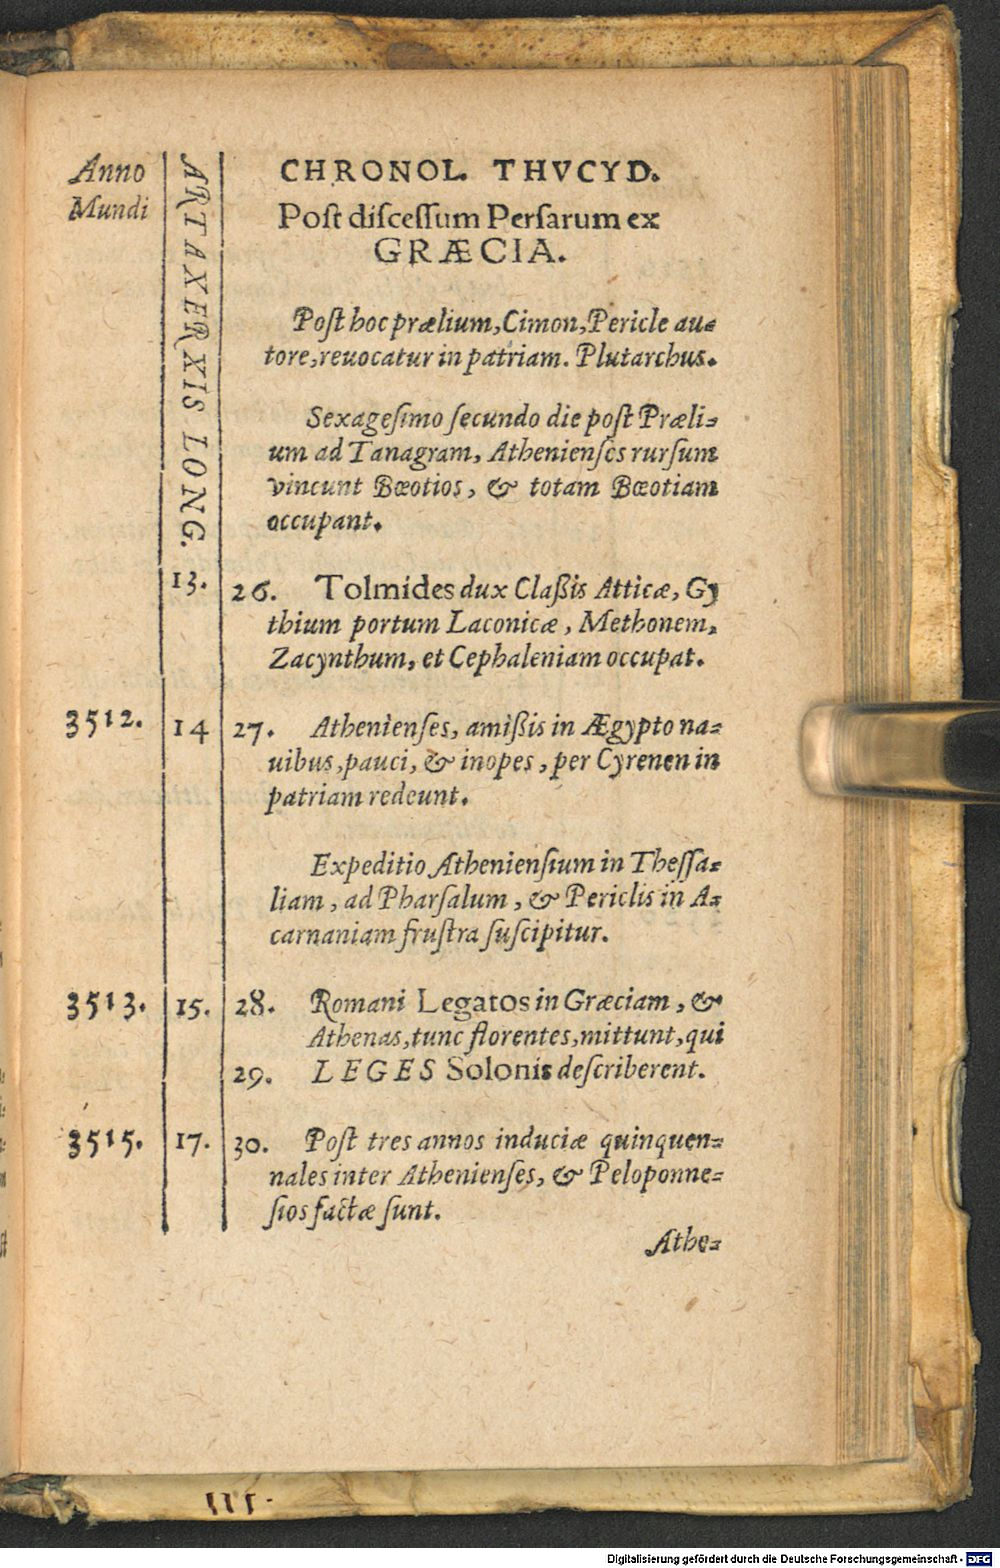 Anno
Mundi
ARTAXERXIS LONG.
CHRONOL. THVCYD.
Post discessum Persarum ex
GRÆCIA.
Post hoc prælium, Cimon, Pericle au=
tore, reuocatur in patriam. Plutarchus.
Sexagesimo secundo die post Præli=
um ad Tanagram, Athenienses rursum
vincunt Bœotios, & totam Bœotiam
occupant.
13. 26. Tolmides dux Claßis Atticæ, Gy
thium portum Laconicæ, Methonem,
Zacynthum, et Cephaleniam occupat.
3512. 14 27. Athenienses, amißis in Ægypto na=
uibus, pauci, & inopes, per Cyrenen in
patriam redeunt.
Expeditio Atheniensium in Thessa=
liam, ad Pharsalum, & Periclis in A=
carnaniam frustra suscipitur.
3513. 15. 28. Romani Legatos in Græciam, &
Athenas, tunc florentes, mittunt, qui
29. LEGES Solonis describerent.
3515. 17. 30. Post tres annos induciæ quinquen=
nales inter Athenienses, & Peloponne=
sios factæ sunt.
Athe=
Digitalisierung gefördert durch die Deutsche Forschungsgemeinschaft - DFG